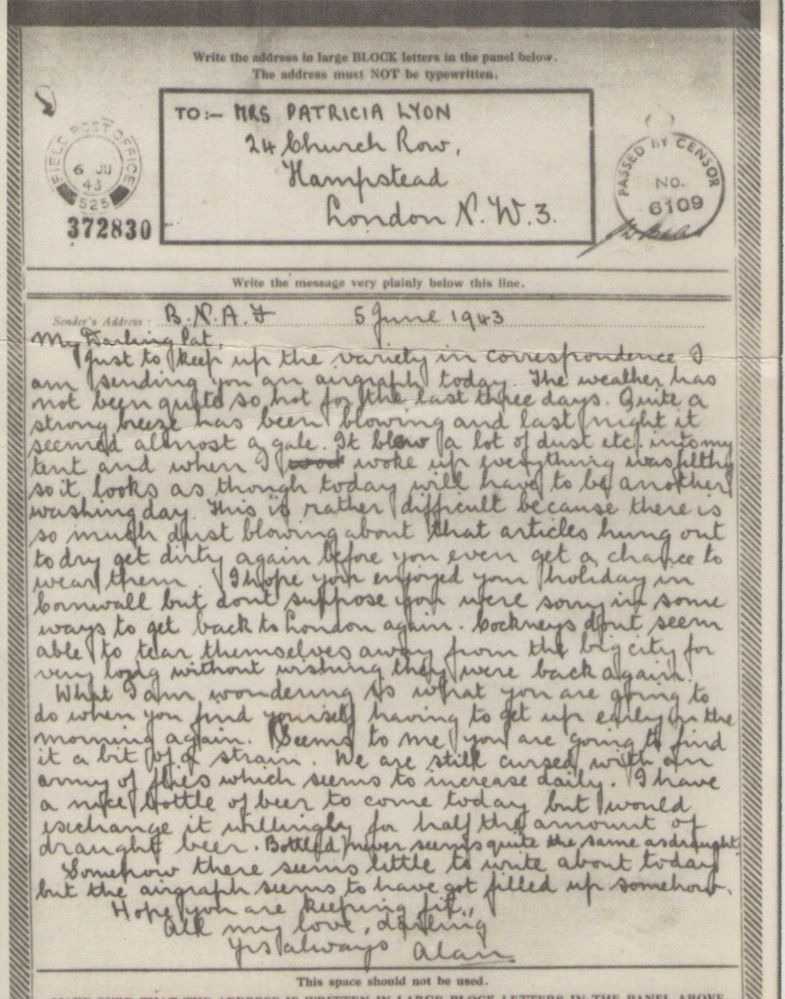 Write the address in large BLOCK letters in the panel below.
The address must NOT be typewritten.
TO:— MRS PATRICIA LYON
24 Church Row,
Hampstead
London N.W.3.
FIELD POST OFFICE
6 JU
43
525
372830
PASSED BY CENSOR
No.
6109
Write the message very plainly below this line.
Sender's Address: B.N.A.F 5 June 1943
My Darling Pat,
Just to keep up the variety in correspondence I
am sending you an airgraph today. The weather has
not been quite so hot for the last three days. Quite a
strong breeze has been blowing and last night it
seemed almost a gale. It blew a lot of dust etc. into my
tent and when I woke up everything was filthy
so it looks as though today will have to be another
washing day. This is rather difficult because there is
so much dust blowing about that articles hung out
to dry get dirty again before you even get a chance to
wear them. I hope you enjoyed your holiday in
Cornwall but dont suppose you were sorry in some
ways to get back to London again. Cockneys dont seem
able to tear themselves away from the big city for
very long without wishing they were back again.
What I am wondering is what you are going to
do when you find yourself having to get up early in the
morning again. Seems to me you are going to find
it a bit of a strain. We are still cursed with an
army of flies which seems to increase daily. I have
a nice bottle of beer to come today but would
exchange it willingly for half the amount of
draught beer. Bottled never seems quite the same as draught.
Somehow there seems little to write about today
but the airgraph seems to have got filled up somehow.
Hope you are keeping fit,
All my love, darling
Yrs always Alan
This space should not be used.
MAKE SURE THAT THE ADDRESS IS WRITTEN IN LARGE BLOCK LETTERS IN THE PANEL ABOVE